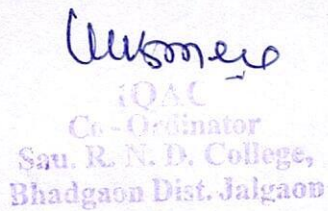 IQAC
Co-Ordinator
Sau. R. N. D. College,
Bhadgaon Dist. Jalgaon